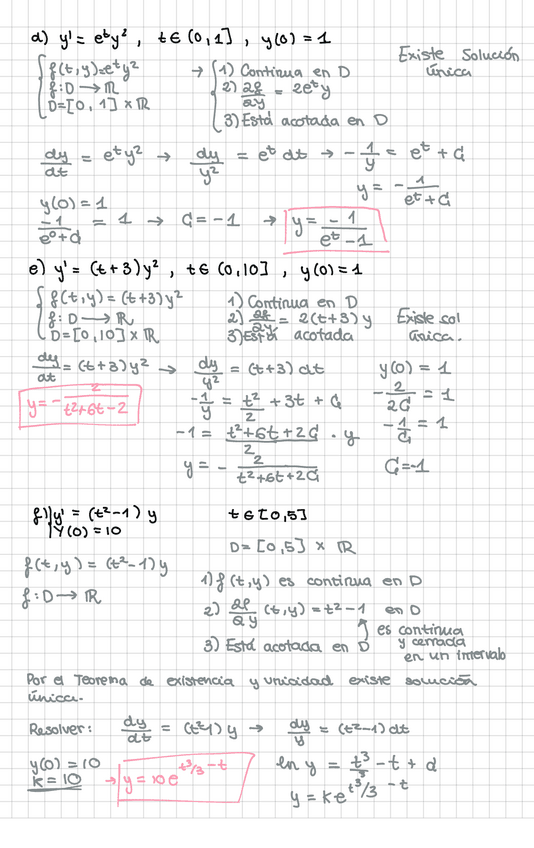 d) y' = e^t y² , t ∈ (0,1] , y(0) = 1
Existe Solución única
{ f(t,y)=e^t y²
f: D → ℝ
D=[0, 1] × ℝ
→ { 1) Continua en D
2) ∂f/∂y = 2e^t y
3) Está acotada en D
dy/dt = e^t y² → dy/y² = e^t dt → - 1/y = e^t + C
y = - 1/(e^t + C)
y(0) = 1
-1/(e⁰+C) = 1 → C = -1 → y = -1/(e^t - 1)
e) y' = (t+3)y² , t ∈ (0,10] , y(0) = 1
{ f(t,y) = (t+3)y²
f: D → ℝ
D=[0,10] × ℝ
1) Continua en D
2) ∂f/∂y = 2(t+3)y
3) Está acotada
Existe sol única.
dy/dt = (t+3)y² → dy/y² = (t+3) dt
y = - 2/(t²+6t-2)
-1/y = t²/2 + 3t + C
-1 = (t²+6t+2C)/2 · y
y = - 2/(t²+6t+2C)
y(0) = 1
- 2/2C = 1
- 1/C = 1
C = -1
f) | y' = (t²-1) y
| y(0) = 10
t ∈ [0,5]
D = [0,5] × ℝ
f(t,y) = (t²-1)y
f: D → ℝ
1) f(t,y) es continua en D
2) ∂f/∂y (t,y) = t²-1 en D
3) Está acotada en D
es continua
y cerrada
en un intervalo
Por el Teorema de existencia y unicidad existe solución
única.
Resolver: dy/dt = (t²-1) y → dy/y = (t²-1) dt
y(0) = 10
k = 10 → y = 10e^(t³/3 - t)
ln y = t³/3 - t + d
y = ke^(t³/3 - t)